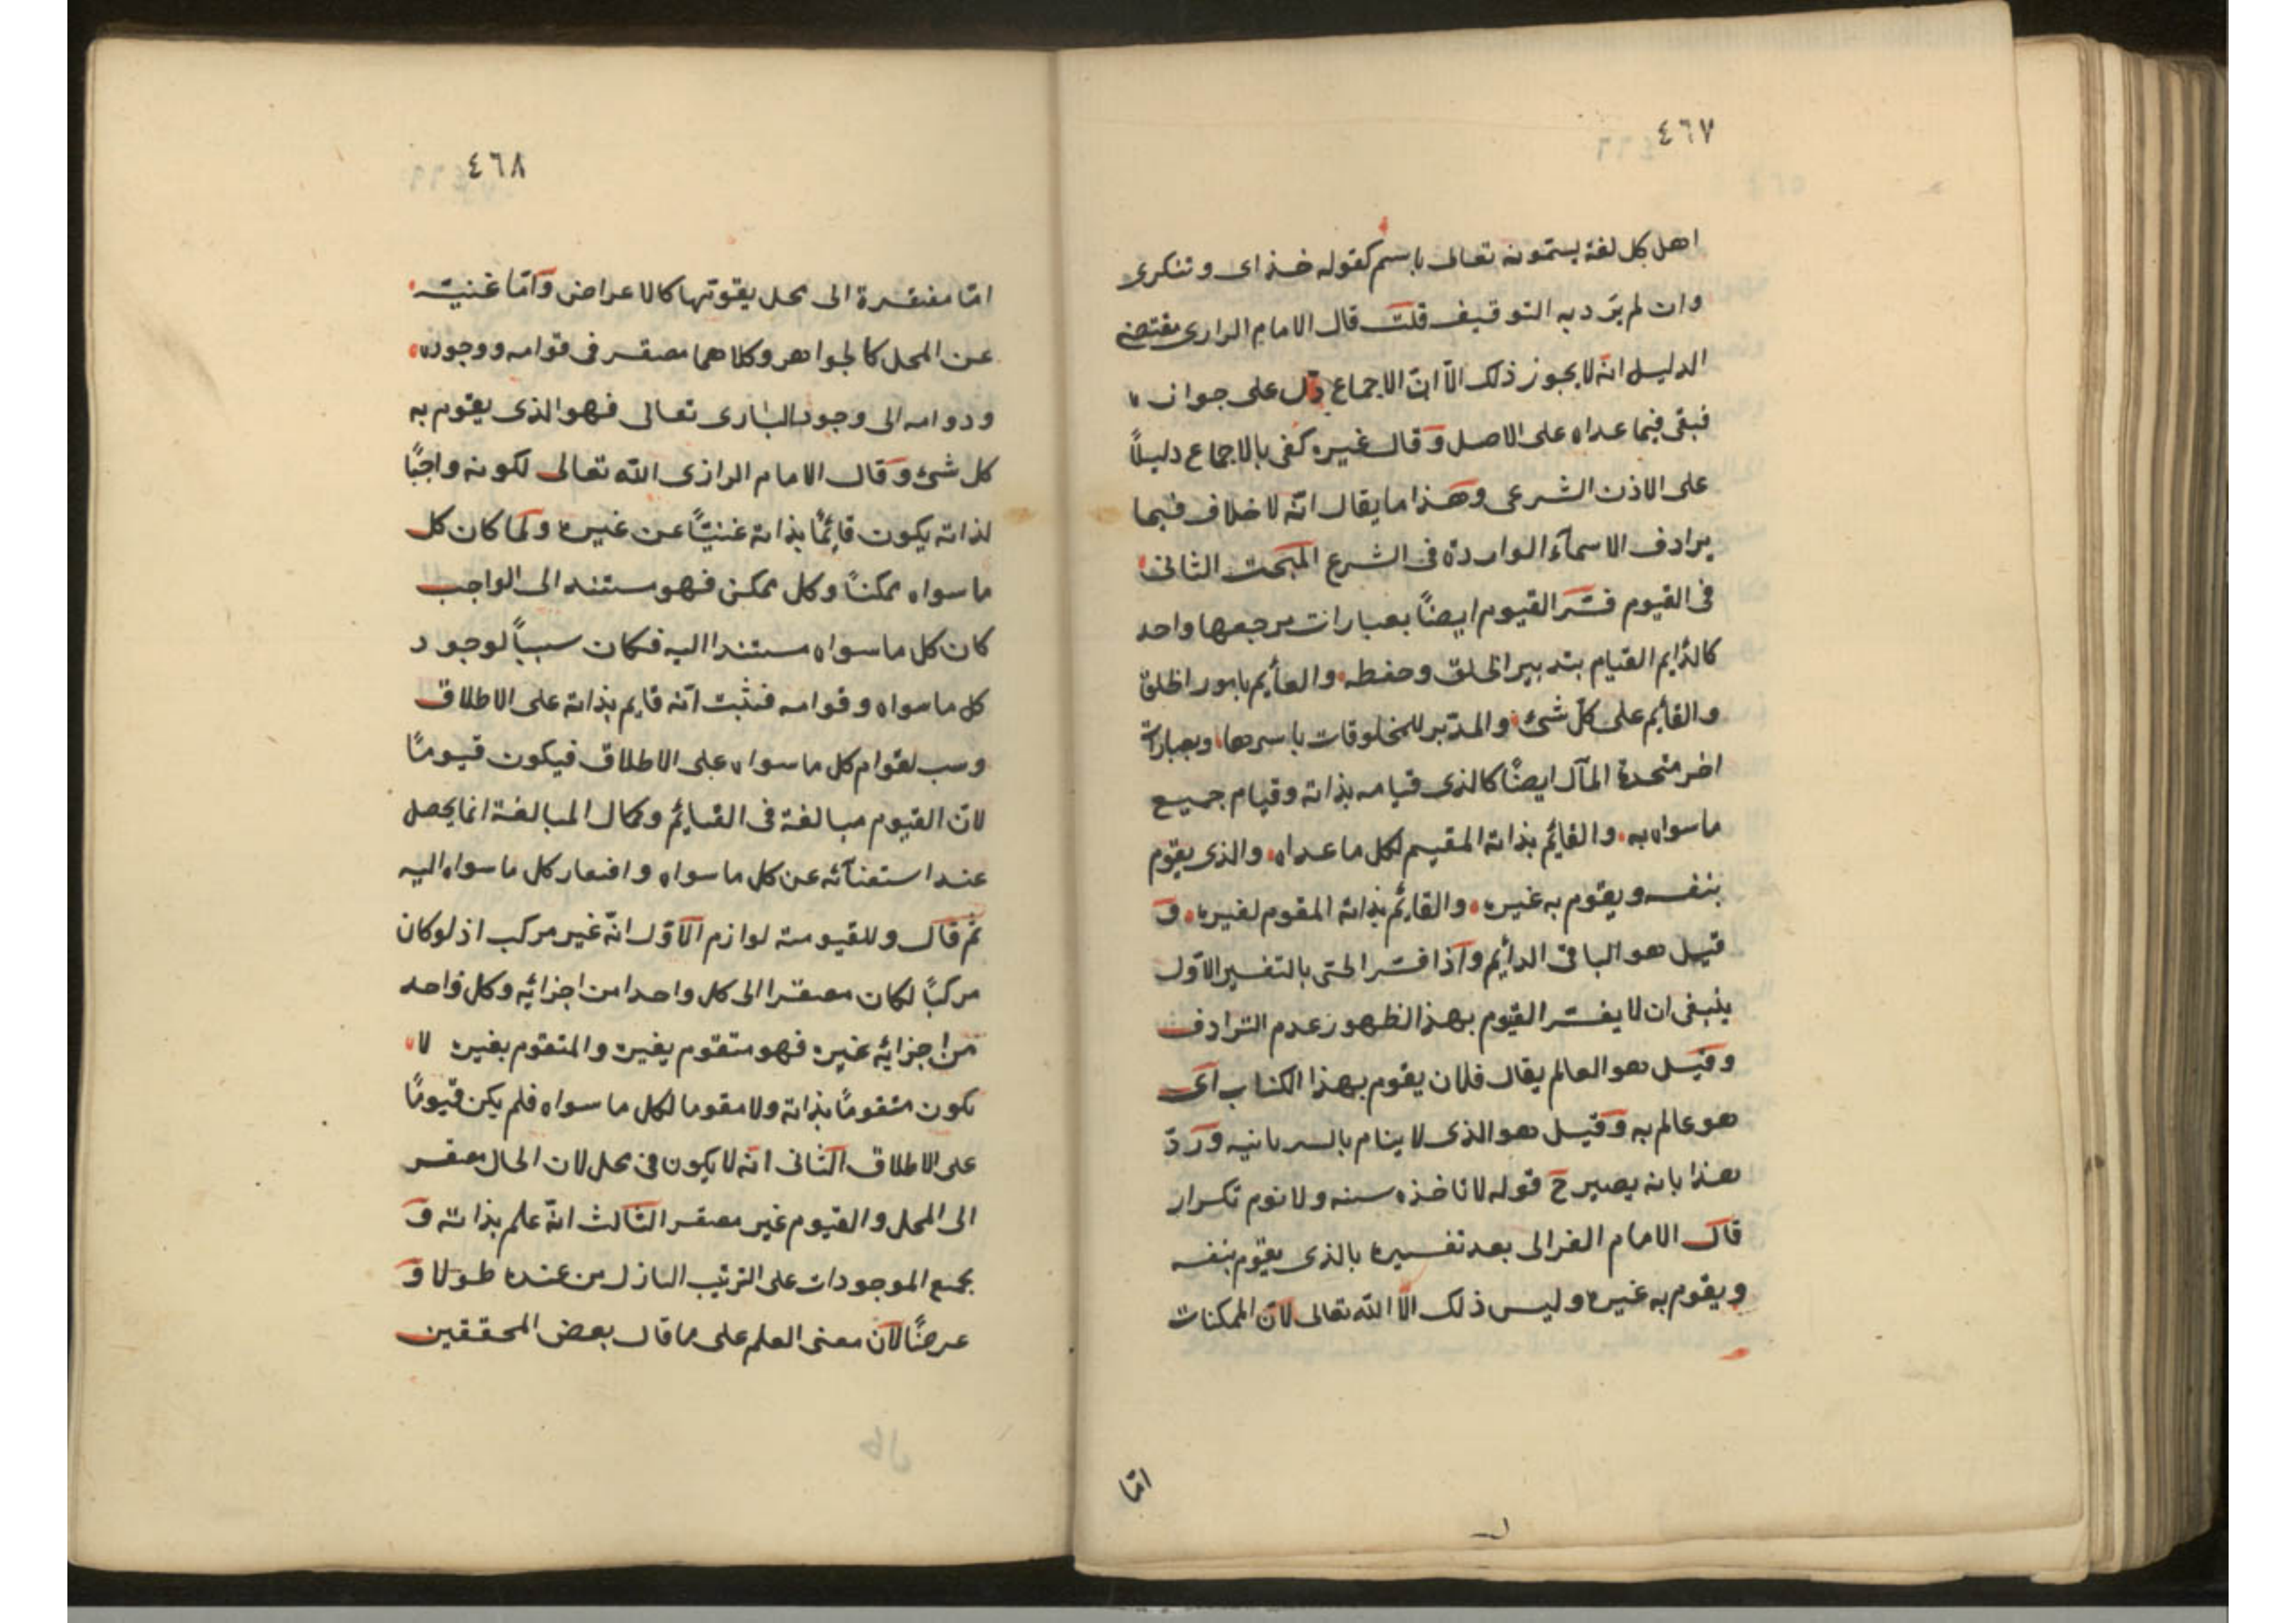 ٤٦٧
اهل كل لغة يستمونه تعالى باسم كقوله خذاى وتنكرى
وان لم يرد به التوقيف قلت قال الامام الرازى مقتضى
الدليل انه لا يجوز ذلك الّا انّ الاجماع دل على جوازه
فبقى فيما عداه على الاصل وقال غيره كفى بالاجماع دليلاً
على الاذن الشرعى وهذا ما يقال انّه لا خلاف فيما
يرادف الاسمآء الواردة فى الشرع المبحث الثانى
فى القيوم فسّر القيوم ايضاً بعبارات مرجعها واحد
كالدّايم القيام بتدبير الخلق وحفظه والقائم بامور الخلق
والقائم على كلّ شئ والمدّبر للمخلوقات باسرها وبعبارات
اخر متحدة المآل ايضاً كالذى قيامه بذاته وقيام جميع
ما سواه به والقائم بذاته المقيم لكل ما عداه والذى يقوم
بنفسه ويقوم به غيره والقائم بذاته المقوم لغيره و
قيل هو الباقى الدائم واذا فسّر الحّى بالتفسير الاوّل
ينبغى ان لا يفسّر القيوم بهذا لظهور عدم الترادف
وقيل هو العالم يقال فلان يقوم بهذا الكتاب اى
هو عالم به وقيل هو الذى لا ينام بالسريانيه وردّ
هذا بانه يصير ح قوله لا تاخذه سنه ولا نوم تكرار
قال الامام الغزالى بعد تفسيره بالذى يقوم بنفسه
ويقوم به غيره وليس ذلك الّا الله تعالى لانّ الممكنات
امّا
٤٦٨
امّا مفتقرة الى محل يقوتها كالاعراض وامّا غنيّة
عن المحل كالجواهر وكلاهما مفتقر فى قوامه ووجوده
ودوامه الى وجود البارى تعالى فهو الذى يقوم به
كل شئ وقال الامام الرازى الله تعالى لكونه واجبًا
لذاته يكون قائمًا بذاته غنيّاً عن غيره ولمّا كان كل
ما سواه ممكناً وكل ممكن فهو مستند الى الواجب
كان كل ما سواه مستندا اليه فكان سبباً لوجود
كل ما سواه وقوامه فثبت انّه قايم بذاته على الاطلاق
وسبب لقوام كل ما سواه على الاطلاق فيكون قيومًا
لانّ القيوم مبالغة فى القائم وكمال المبالغة انما يحصل
عند استغنآئه عن كل ما سواه وافتقار كل ما سواه اليه
ثم قال وللقيومية لوازم الاوّل انّه غير مركب اذ لو كان
مركبًا لكان مفتقرا الى كل واحدا من اجزائه وكل واحد
من اجزائه غيره فهو متقوم بغيره والمتقوم بغيره لا
يكون متقومًا بذاته ولا مقوما لكل ما سواه فلم يكن قيومًا
على الاطلاق الثانى انّه لا يكون فى محل لان الحال مفتقر
الى المحل والقيوم غير مفتقر الثالث انّه علم بذاته و
بجميع الموجودات على الترتيب النازل من عنده طولا و
عرضًا لانّ معنى العلم على ما قال بعض المحققين